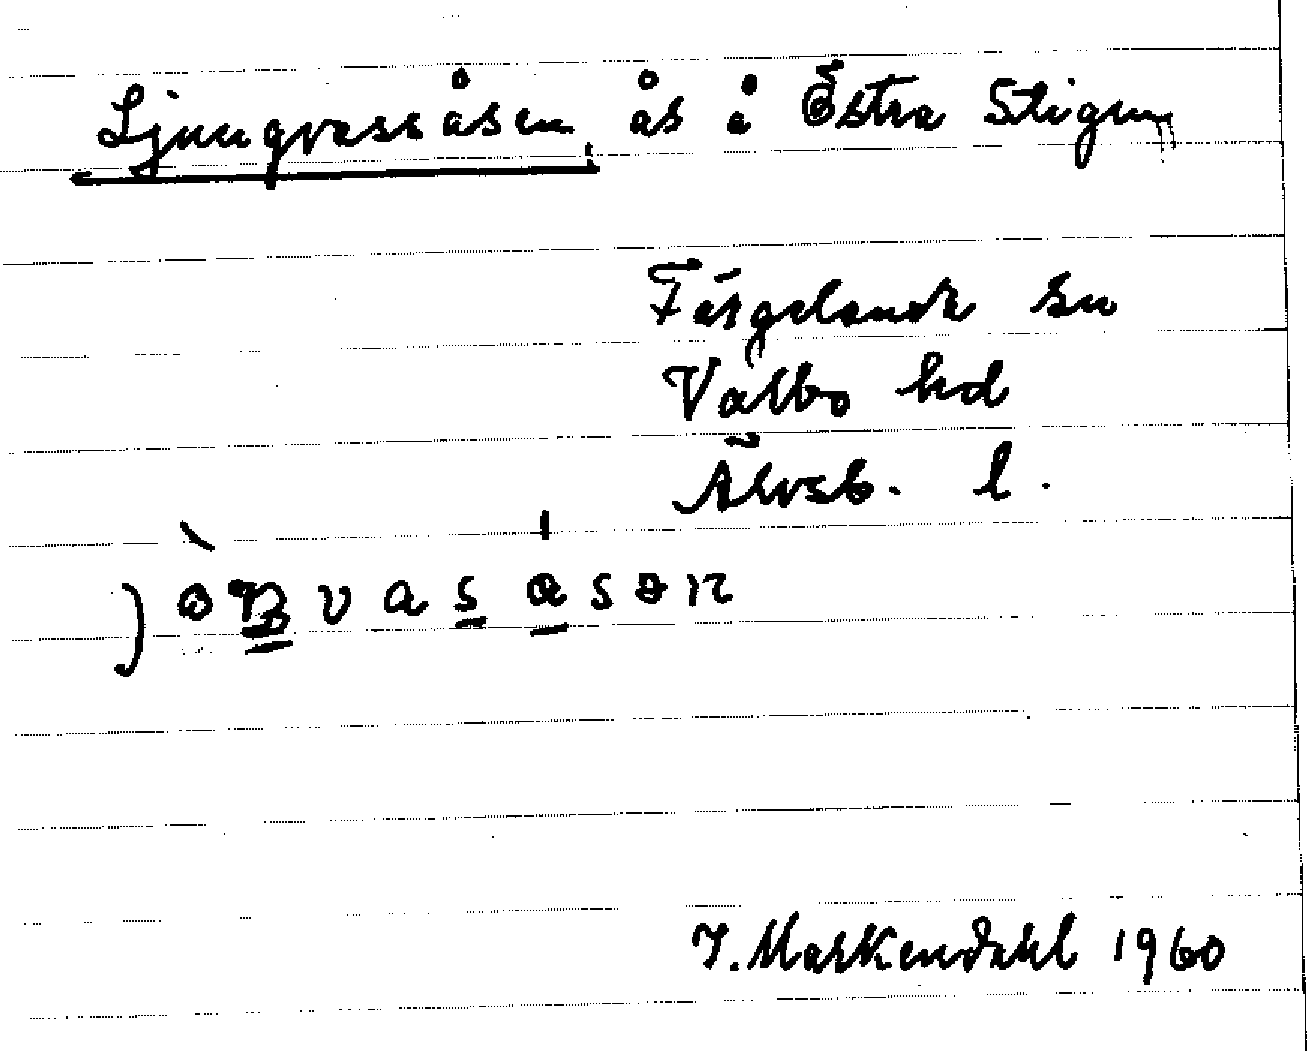 Ljungvassåsen ås å Östra Stigen
Färgelanda sn
Valbo hd
Älvsb. l.
I. Markendahl 1960